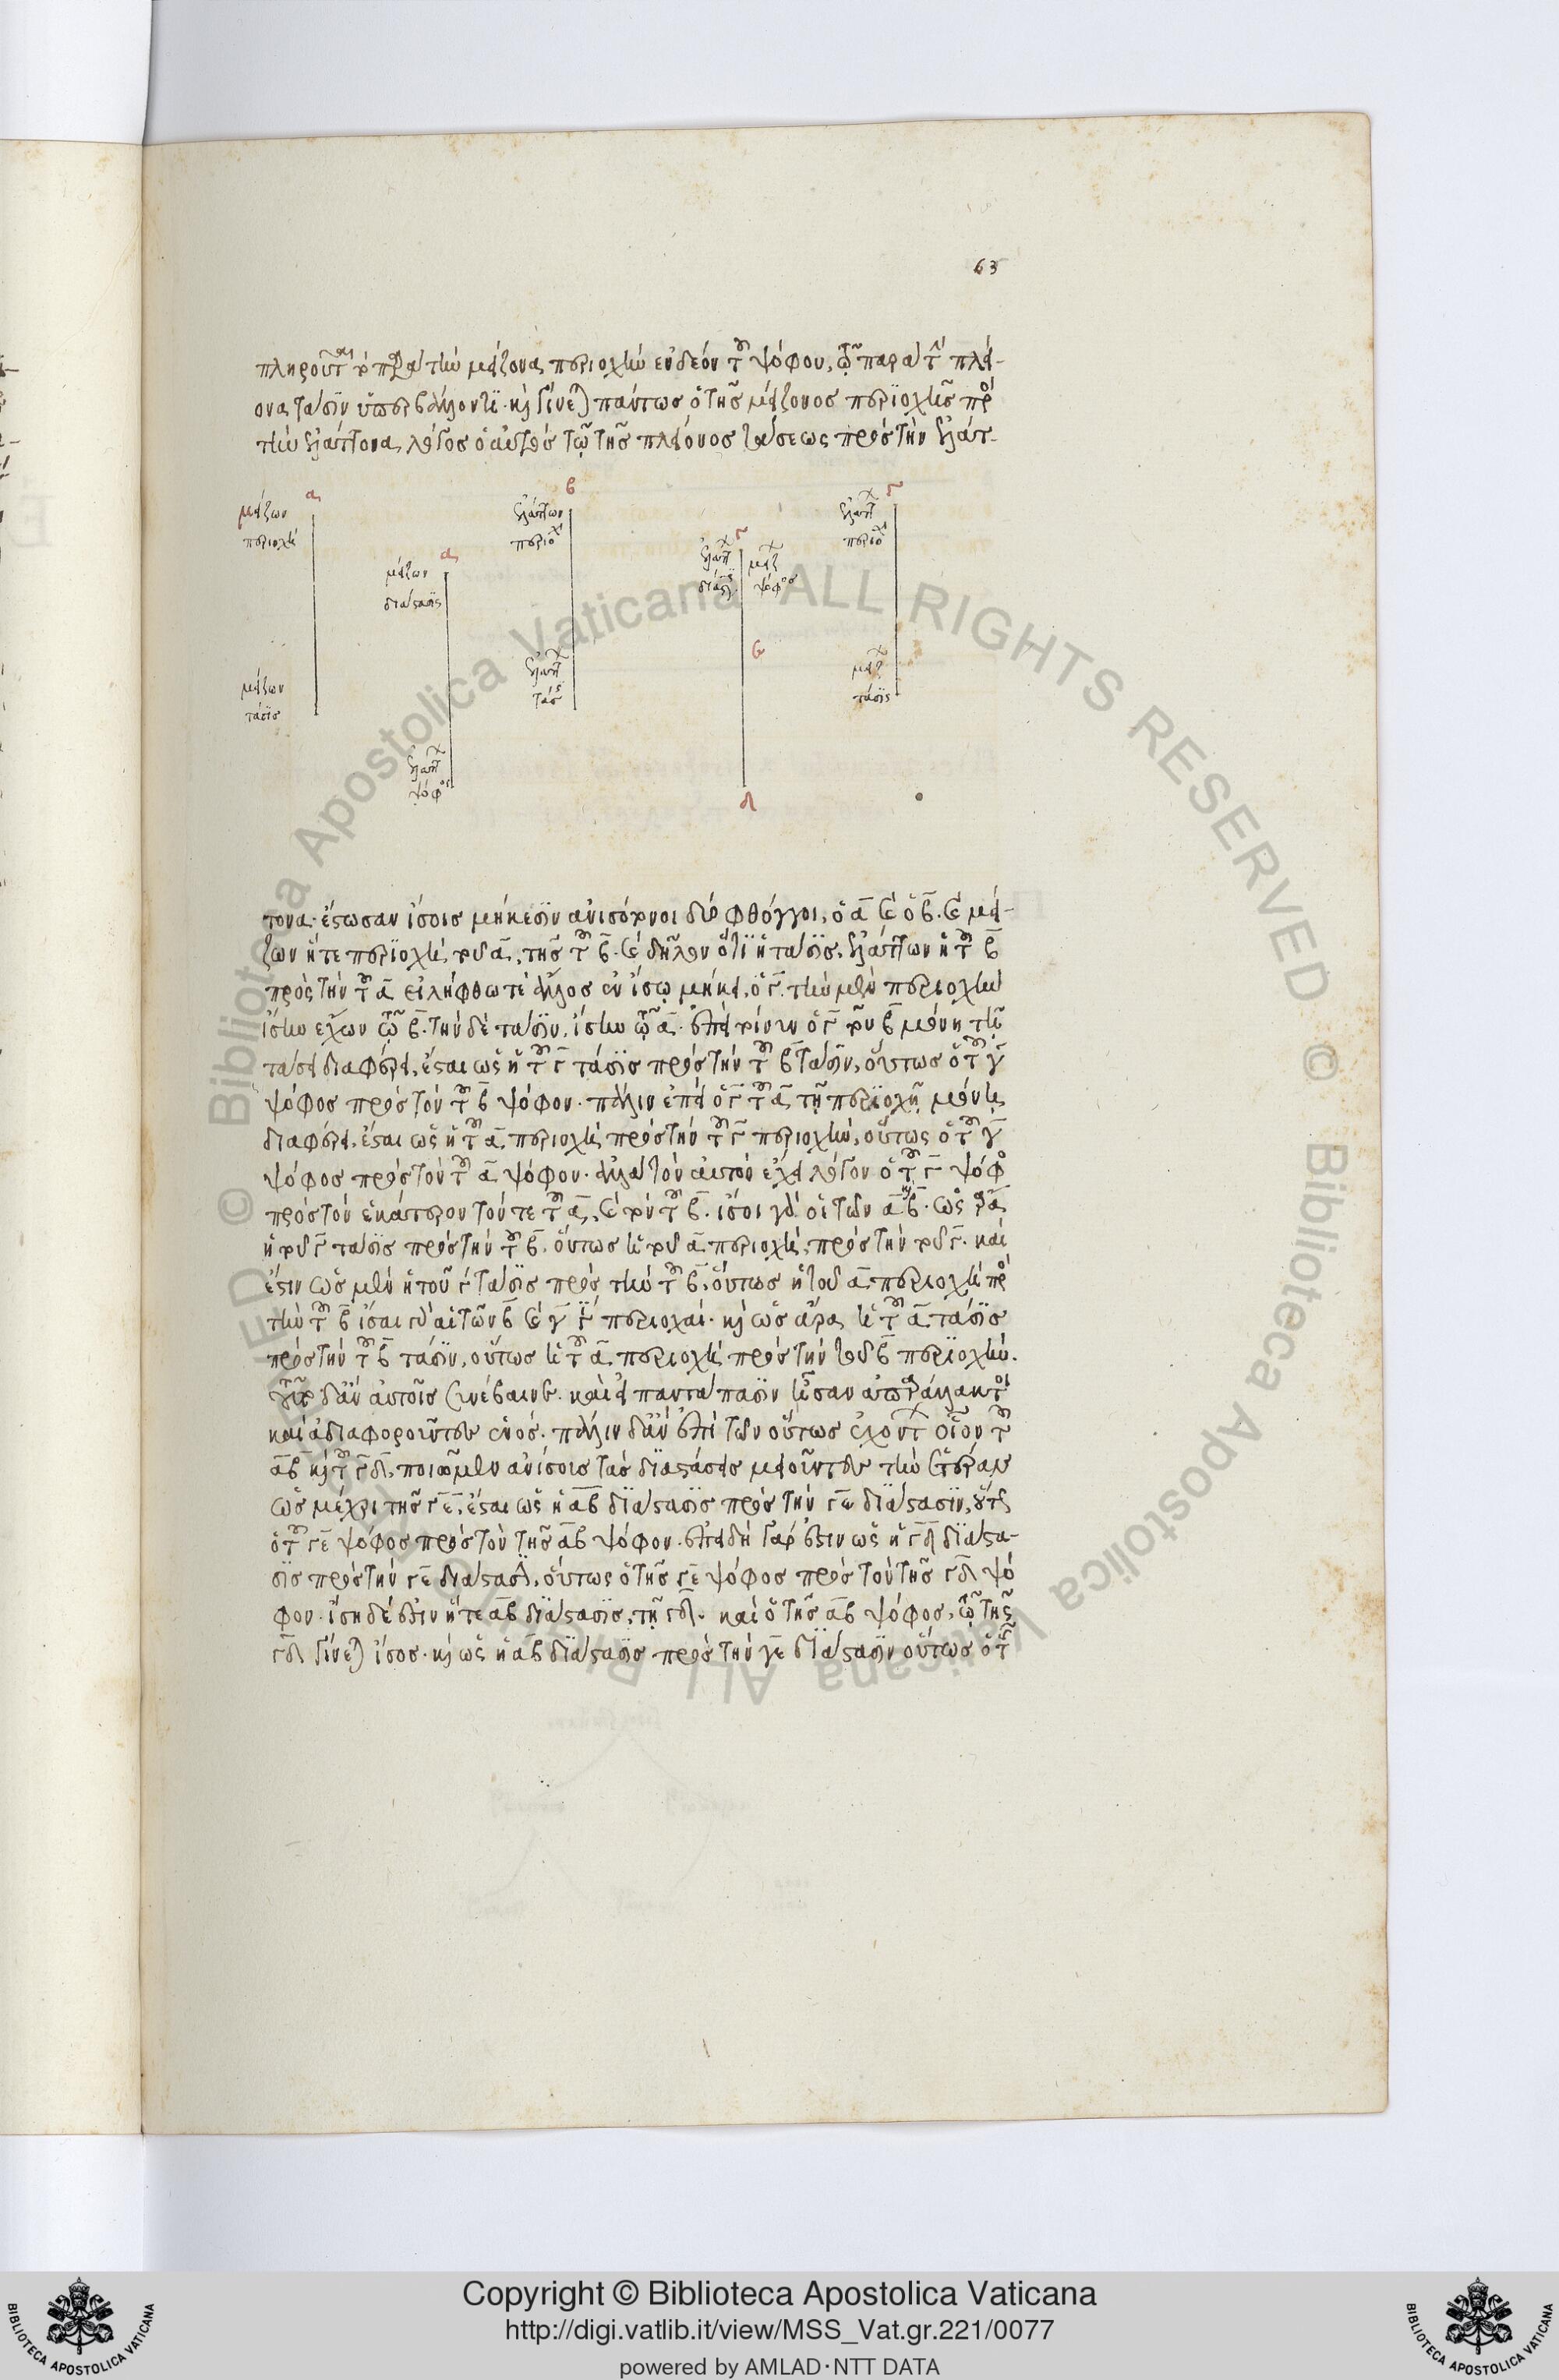 63
πληροῦται τὸ παρὰ τὴν μείζονα περιοχὴν ἐνδέον τοῦ ψόφου, τῷ παρὰ τὴν πλεί-
ονα τάσιν ὑπερβάλλοντι. καὶ γίνεται πάντως ὁ τῆς μείζονος περιοχῆς πρὸς
τὴν ἐλάττονα λόγος ὁ αὐτὸς τῷ τῆς πλείονος τάσεως πρὸς τὴν ἐλάτ-
α
μείζων
περιοχή
μείζων
τάσις
α
μείζων
διάστασις
ἐλάττ
ψόφος
β
ἐλάττων
περιοχ
ἐλάττ
τάσ
γ
ἐλάττ
διάστ
μείζ
ψόφος
ε
δ
γ
ἐλάττ
περιοχ
μείζ
τάσις
τονα. ἔστωσαν ἴσοις μήκεσιν ἀνισότονοι δύο φθόγγοι, ὁ α καὶ ὁ β. καὶ μεί-
ζων ἥ τε περιοχὴ τοῦ α, τῆς τοῦ β. καὶ δῆλον ὅτι ἡ τάσις, ἐλάττων ἡ τοῦ β
πρὸς τὴν τοῦ α εἰλήφθω τὲ ἄλλος ἐν ἴσῳ μήκει, ὁ γ. τὴν μὲν περιοχὴν
ἴσην ἔχων τῷ β. τὴν δὲ τάσιν, ἴσην τῷ α. ἐπεὶ τοίνυν ὁ γ τοῦ β μόνῃ τῇ
τάσει διαφέρει, ἔσται ὡς ἡ τοῦ γ τάσις πρὸς τὴν τοῦ β τάσιν, οὕτως ὁ τοῦ γ
ψόφος πρὸς τὸν τοῦ β ψόφον. πάλιν ἐπεὶ ὁ γ τοῦ α τῇ περιοχῇ μόνῃ
διαφέρει, ἔσται ὡς ἡ τοῦ α περιοχὴ πρὸς τὴν τοῦ γ περιοχήν, οὕτως ὁ τοῦ γ
ψόφος πρὸς τὸν τοῦ α ψόφον. ἀλλὰ τὸν αὐτὸν ἔχει λόγον ὁ τοῦ γ ψόφος
πρὸς τὸν ἑκάτερον τόν τε τοῦ α, καὶ τὸν τοῦ β. ἴσοι γὰρ οἱ τῶν α καὶ β. ὡς ἄρα
ἡ τοῦ γ τάσις πρὸς τὴν τοῦ β, οὕτως ἡ τοῦ α περιοχὴ, πρὸς τὴν τοῦ γ. καὶ
ἔστιν ὡς μὲν ἡ τοῦ γ τάσις πρὸς τὴν τοῦ β, οὕτως ἡ τοῦ α περιοχὴ πρὸς
τὴν τοῦ β ἴσαι γὰρ αἱ τῶν β καὶ γ περιοχαί. καὶ ὡς ἄρα ἡ τοῦ α τάσις
πρὸς τὴν τοῦ β τάσιν, οὕτως ἡ τοῦ α περιοχὴ πρὸς τὴν τοῦ β περιοχήν.
τοῦτο δ' ἂν αὐτοῖς συνέβαινε. καὶ εἰ παντάπασιν ἦσαν ἀπαράλλακτοι
καὶ ἀδιαφοροῦντες ἑνός. πάλιν δ' ἂν ἐπὶ τῶν οὕτως ἐχόντων οἷον τοῦ
αβ καὶ τοῦ γδ, ποιῶμεν ἀνίσοις τὰς διαστάσεις μειοῦντες τὴν ἑτέραν
ὡς μέχρι τῆς γε, ἔσται ὡς ἡ αβ διάστασις πρὸς τὴν γε διάστασιν, οὕτως
ὁ τῆς γε ψόφος πρὸς τὸν τῆς αβ ψόφον. ἐπειδὴ γάρ ἐστιν ὡς ἡ γδ διάστα-
σις πρὸς τὴν γε διάστασιν, οὕτως ὁ τῆς γε ψόφος πρὸς τὸν τῆς γδ ψό
φον. ἴση δέ ἐστιν ἥ τε αβ διάστασις, τῇ γδ. καὶ ὁ τῆς αβ ψόφος, τῷ τῆς
γδ γίνεται ἴσος. καὶ ὡς ἡ αβ διάστασις πρὸς τὴν γε διάστασιν οὕτως ὁ τῆς
Copyright © Biblioteca Apostolica Vaticana
http://digi.vatlib.it/view/MSS_Vat.gr.221/0077
powered by AMLAD·NTT DATA
BIBLIOTECA APOSTOLICA VATICANA
BIBLIOTECA APOSTOLICA VATICANA
© Biblioteca Apostolica Vaticana ALL RIGHTS RESERVED © Biblioteca Apostolica Vaticana ALL RIGHTS RESERVED